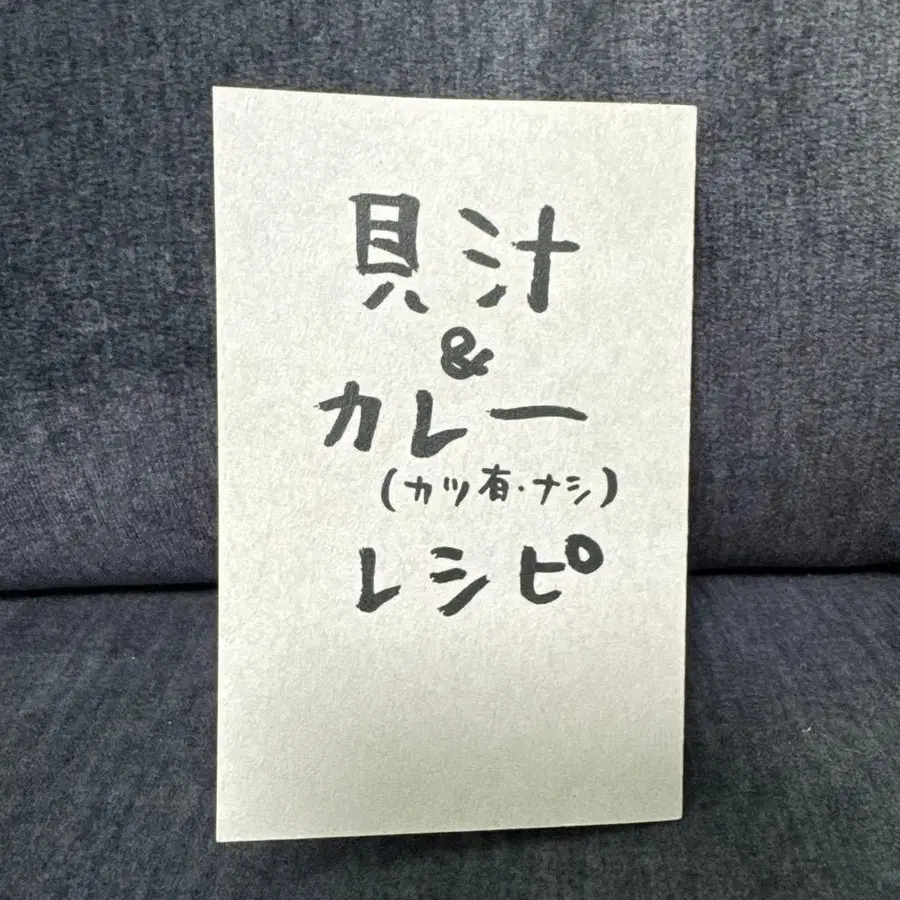 貝汁
&
カレー
(カツ有・ナシ)
レシピ